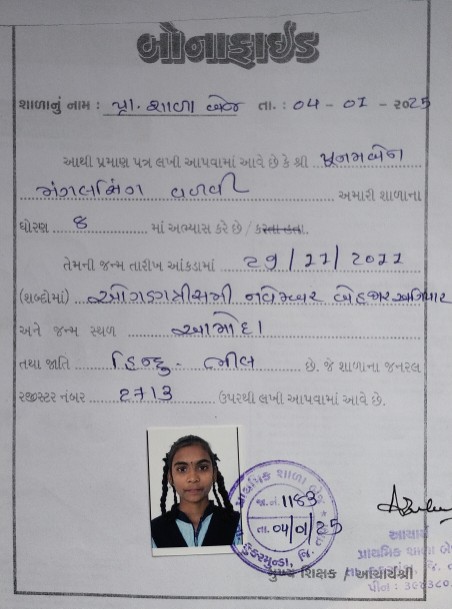 બોનાફાઈડ
શાળાનું નામ : પ્રા. શાળા બેજ તા. : ૦૪ - ૦1 - ૨૦25
આથી પ્રમાણ પત્ર લખી આપવામાં આવે છે કે શ્રી પૂનમબેન
મંગલસિંગ વળવી અમારી શાળાના
ધોરણ ૪ માં અભ્યાસ કરે છે / કરતા હતા.
તેમની જન્મ તારીખ આંકડામાં ૨૭ / 11 / ૨૦11
(શબ્દોમાં) ઓગણત્રીસમી નવેમ્બર બેહજાર અગિયાર
અને જન્મ સ્થળ આમોદા
તથા જાતિ હિન્દુ - ભીલ છે. જે શાળાના જનરલ
રજીસ્ટર નંબર ૨713 ઉપરથી લખી આપવામાં આવે છે.
પ્રાથમિક શાળા બેજ
જા.નં. 1183
તા. ૦૪/01/25
કુકરમુન્ડા, જિ.
આચાર્ય
પ્રાથમિક શાળા બે
મુખ્ય શિક્ષક / આચાર્યશ્રી
પીન :